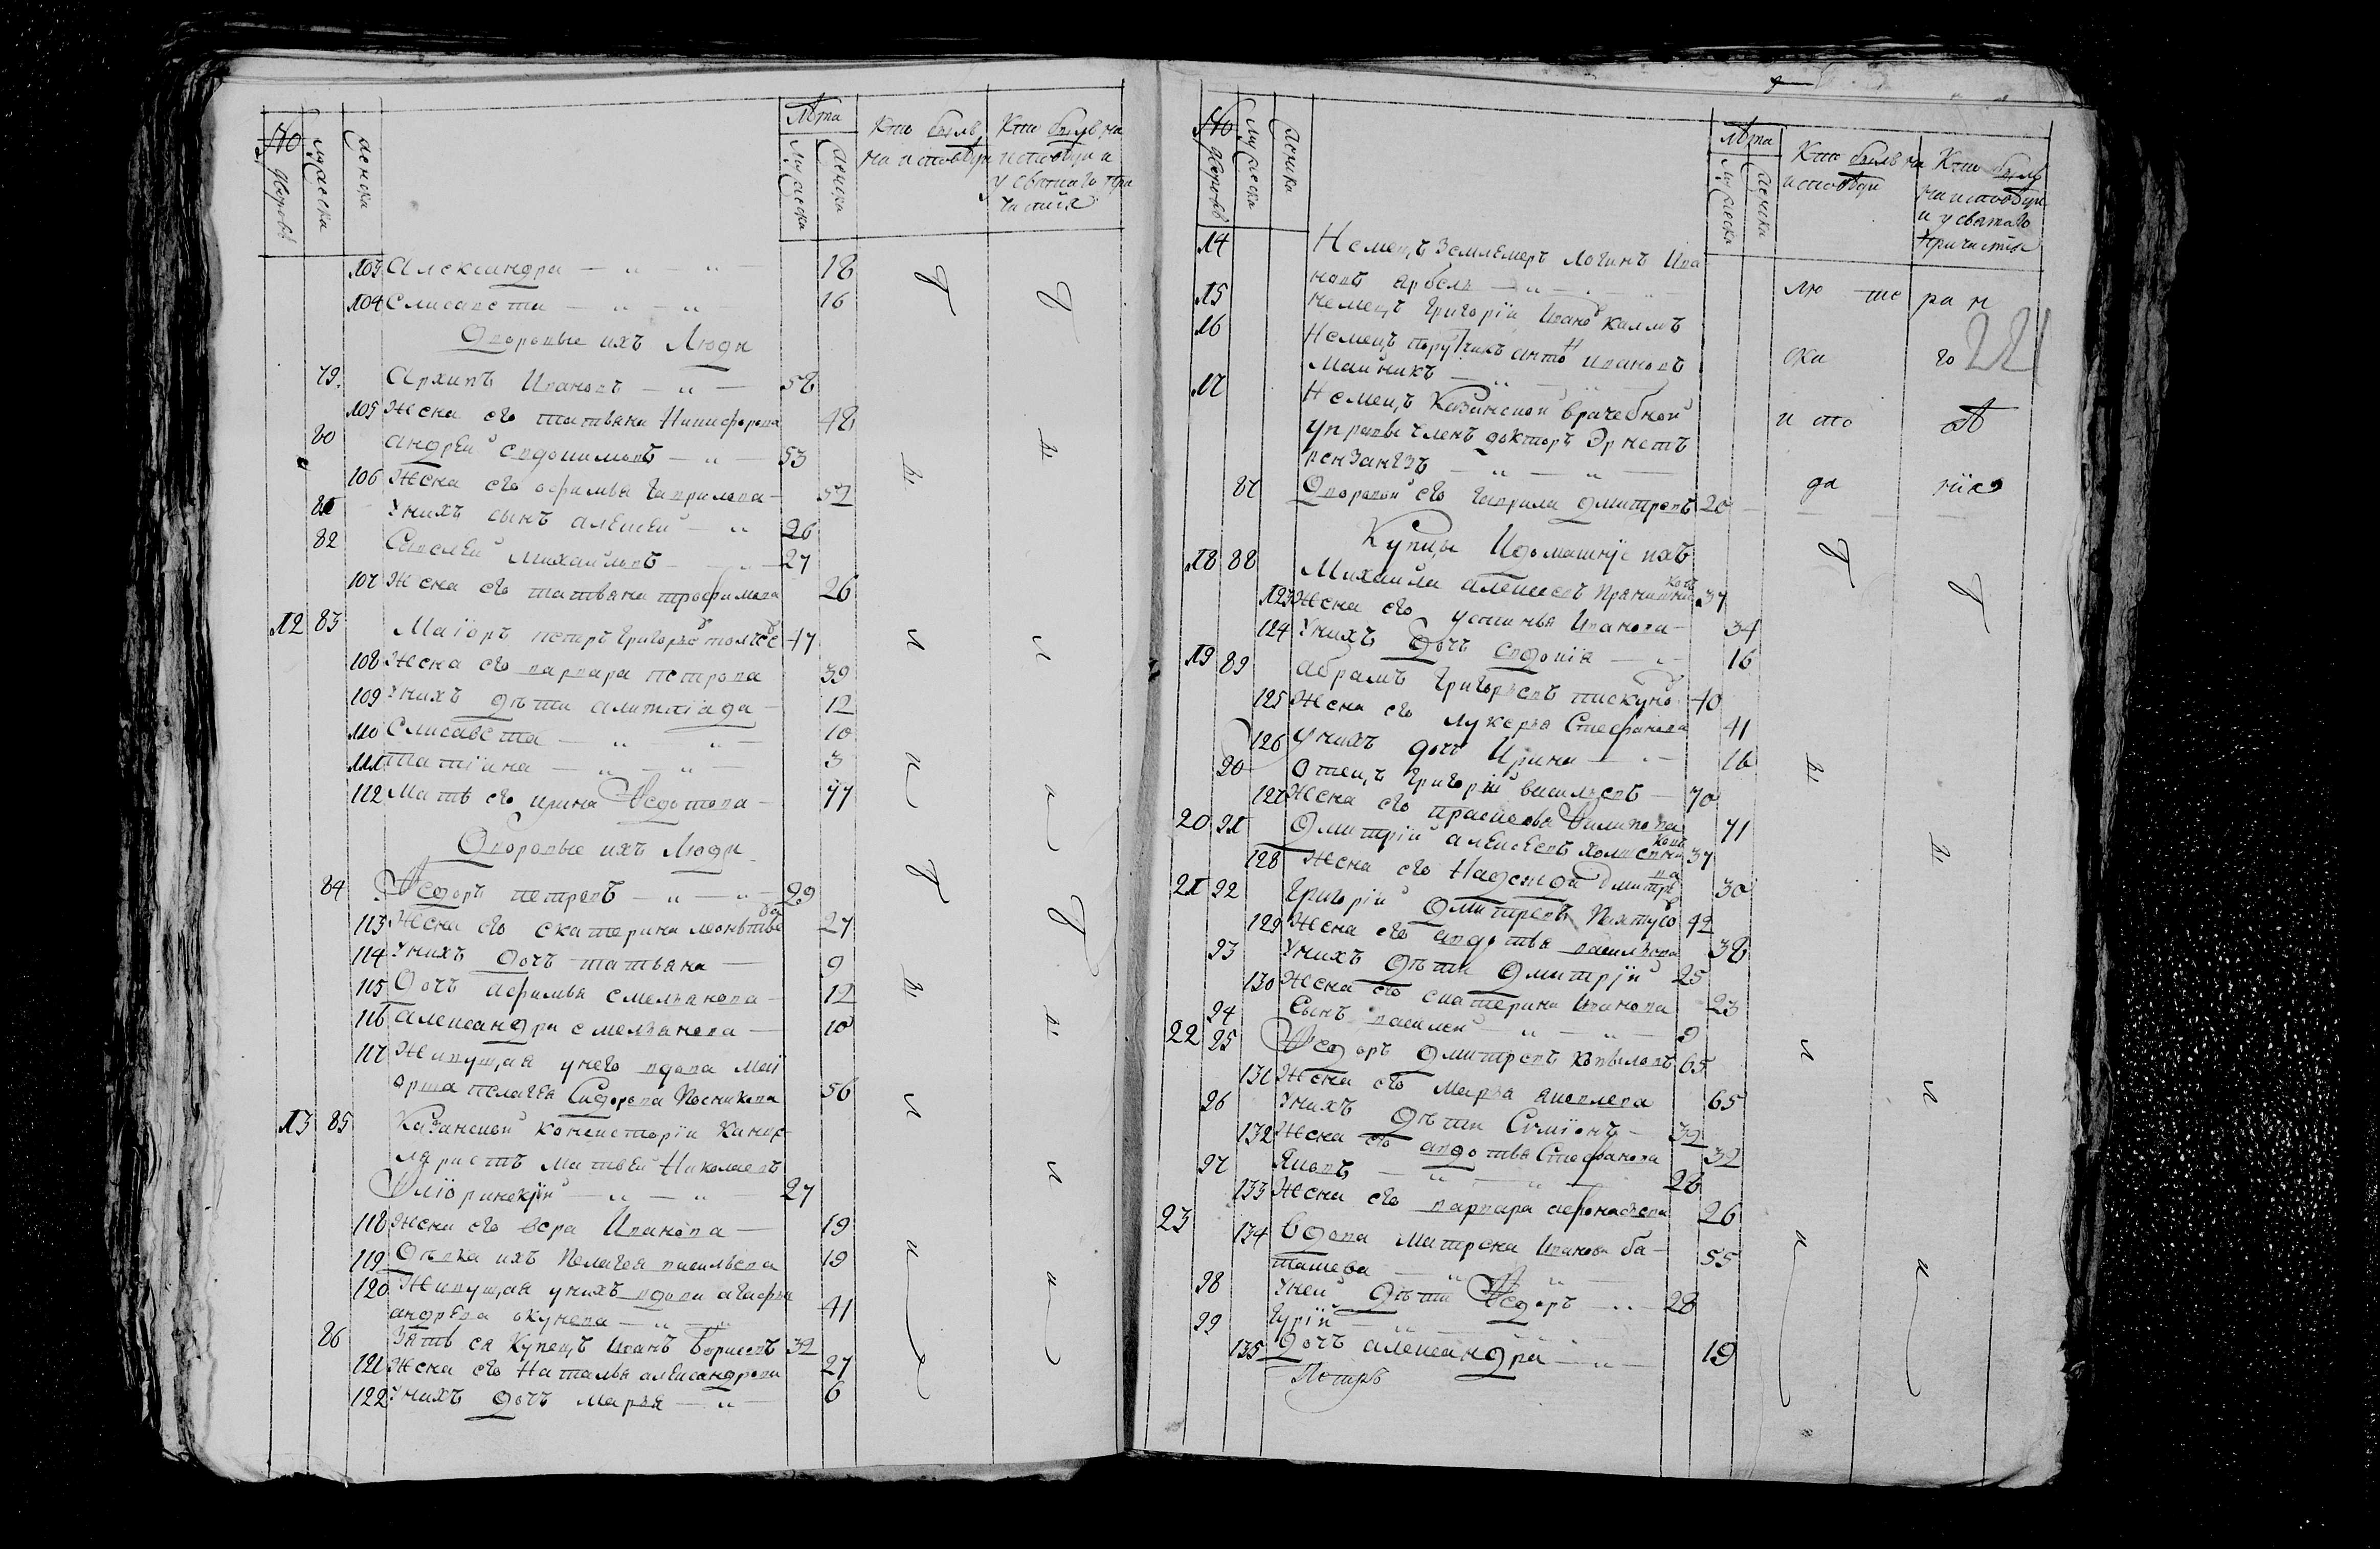 No дворовъ
мужеска
женска
Лѣта
мужеска
женска
Кто былъ
на исповѣди
Кто былъ на
исповѣди и
у святаго при
частия
103 Александра — „ — „ — 18
104 Елисавета — „ — „ — 16
Дворовые ихъ Люди
79. Архипъ Ивановъ — „ — 58
105 Жена его татьяна Никифорова 48
80 андрей евдокимовъ — „ — 53
106 Жена его афимья гаврилова — 52
81 У нихъ сынъ алексей — „ 26
82 Савелей Михайловъ — „ — 27
107 Жена его татьяна трофимова 26
12 83 Маіоръ петръ Григорьевъ 47
108 Жена его варвара петрова 39
109 У нихъ дѣти 12
110 Елисавета — „ — „ — 10
111 татіяна — „ — „ — 3
112 Мать его ирина Ѳедотова — 77
Дворовые ихъ Люди
84 Ѳедоръ петровъ — „ — „ — 29
113 Жена его екатерина леонтьева 27
114 У нихъ дочь татьяна — 9
115 Дочь афимья емельянова — 12
116 александра емельянова — 10
117 Живущая у него вдова маі
орша пелагея Сидорова 56
13 85 Казанской консисторіи канце
ляристъ Матвей Николаевъ
27
118 Жена его вера Иванова — 19
119 Дѣвка ихъ Пелагея васильева 19
120 Живущая у нихъ вдова агафья
андрѣева окунева — „ — „ 41
86 Зять ея Купецъ иванъ борисовъ 32
121 Жена его Наталья александрова 27
122 У нихъ дочь марья — „ — 6
в
в
ъ
ъ
и
и
No дворовъ
мужеска
женска
Лѣта
мужеска
женска
Кто былъ на
исповѣди
Кто былъ
на исповѣди
и у святаго
причастія
14 Немецъ землемеръ логинъ Ива
новъ — „ — „
15 немецъ Григорій Ивановъ
16 Немецъ порутчикъ антонъ ивановъ
Майникъ — „ — „ —
17 Немецъ Казанской врачебной
управы членъ докторъ Эрнетъ
— „ — „ —
87 Дворовой его гаврила дмитревъ 20
лю те ран
ска го
221
и сто
да
Купцы И домашніе ихъ
18 88 Михайла алексеевъ 37
123 Жена его устинья Иванова — 34
124 У нихъ дочь евдокія — „ — 16
19 89 абрамъ григорьевъ пискуновъ 40
125 Жена его лукерья Стефанова 41
126 У нихъ дочь Ирина — „ — 16
90 Отецъ Григорій васильевъ — 70
127 Жена его прасковья Филипова 71
20 91 Дмитрій алексеевъ 37
128 Жена его Надежда дмитрева 30
21 92 Григорій дмитревъ 42
129 Жена его авдотья васильева 38
93 У нихъ дѣти дмитрій 25
130 Жена его екатерина иванова 23
94 Сынъ василей — „ — „ — 9
22 95 Ѳедоръ дмитревъ копыловъ 65
131 Жена его марья яковлева 65
96 У нихъ дѣти Симіонъ — 32
132 Жена его авдотья Стефанова 32
97 Яковъ — „ — „ — 26
133 Жена его варвара афонасьева 26
23 134 Вдова матрена иванова ба
ташева — „ — „ — 55
98 У ней дѣти Ѳедоръ — „ — 28
99 Гурій — „
135 Дочь александра — „ — 19
Петръ
в
в
ъ
ъ
и
и